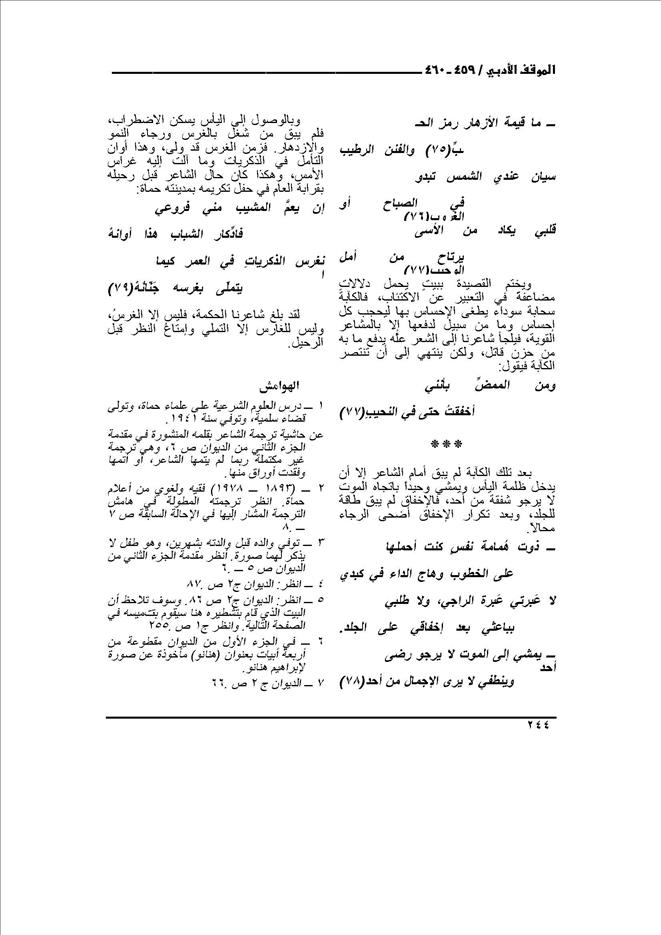 الموقف الأدبي / ٤٥٩ ـ ٤٦٠
ــ ما قيمة الأزهار رمز الحـ
ـبِّ(٧٥) والفنن الرطيب
سيان عندي الشمس تبدو
في الصباح أو
الغروب(٧٦)
قلبي يكاد من الأسى
يرتاح من أمل
(٧٧)
ويختم القصيدة ببيتٍ يحمل دلالاتٍ
مضاعفة في التعبير عن الاكتئاب، فالكآبة
سحابة سوداء يطغى الإحساس بها ليحجب كل
إحساس وما من سبيل لدفعها إلا بالمشاعر
القوية، فيلجأ شاعرنا إلى الشعر علّه يدفع ما به
من حزن قاتل، ولكن ينتهي إلى أن تنتصر
الكآبة فيقول:
ومن الممضِّ بأنني
أخفقتُ حتى في النحيب(٧٧)
***
بعد تلك الكآبة لم يبق أمام الشاعر إلا أن
يدخل ظلمة اليأس ويمشي وحيداً باتجاه الموت
لا يرجو شفقة من أحد، فالإخفاق لم يبق طاقة
للجلد، وبعد تكرار الإخفاق أضحى الرجاء
محالاً.
ــ ذوت هُمامة نفسٍ كنت أحملها
على الخطوب وهاج الداء في كبدي
لا عَبرتي عَبرة الراجي، ولا طلبي
بباعثي بعد إخفاقي على الجلد.
ــ يمشي إلى الموت لا يرجو رضى
أحد
وينطفي لا يرى الإجمال من أحد(٧٨)
وبالوصول إلى اليأس يسكن الاضطراب،
فلم يبق من شغل بالغرس ورجاء النمو
والازدهار. فزمن الغرس قد ولى، وهذا أوان
التأمل في الذكريات وما آلت إليه غراس
الأمس، وهكذا كان حال الشاعر قبل رحيله
بقرابة العام في حفل تكريمه بمدينته حماة:
إن يعمَّ المشيب مني فروعي
فادِّكار الشباب هذا أوانهُ
نغرس الذكرياتِ في العمر كيما
يتملّى بغرسه جَنّاتهُ(٧٩)
لقد بلغ شاعرنا الحكمة، فليس إلا الغرسُ،
وليس للغارس إلا التملي وإمتاعُ النظر قبل
الرحيل.
الهوامش
١ ــ درس العلوم الشرعية على علماء حماة، وتولى
قضاء سلمية، وتوفي سنة ١٩٤١.
عن حاشية ترجمة الشاعر بقلمه المنشورة في مقدمة
الجزء الثاني من الديوان ص ٦، وهي ترجمة
غير مكتملة ربما لم يتمها الشاعر، أو أتمها
وفقدت أوراق منها.
٢ ــ (١٨٩٣ ــ ١٩٧٨) فقيه ولغوي من أعلام
حماة. انظر ترجمته المطولة في هامش
الترجمة المشار إليها في الإحالة السابقة ص ٧
ــ ٨.
٣ ــ توفي والده قبل والدته بشهرين، وهو طفل لا
يذكر لهما صورة. انظر مقدمة الجزء الثاني من
الديوان ص ٥ ــ ٦.
٤ ــ انظر: الديوان ج٢ ص ٨٧.
٥ ــ انظر: الديوان ج٢ ص ٨٦. وسوف تلاحظ أن
البيت الذي قام بتشطيره هنا سيقوم بتخميسه في
الصفحة التالية. وانظر ج١ ص ٢٥٥.
٦ ــ في الجزء الأول من الديوان مقطوعة من
أربعة أبيات بعنوان (هنانو) مأخوذة عن صورة
لإبراهيم هنانو.
٧ ــ الديوان ج ٢ ص ٦٦.
٢٤٤